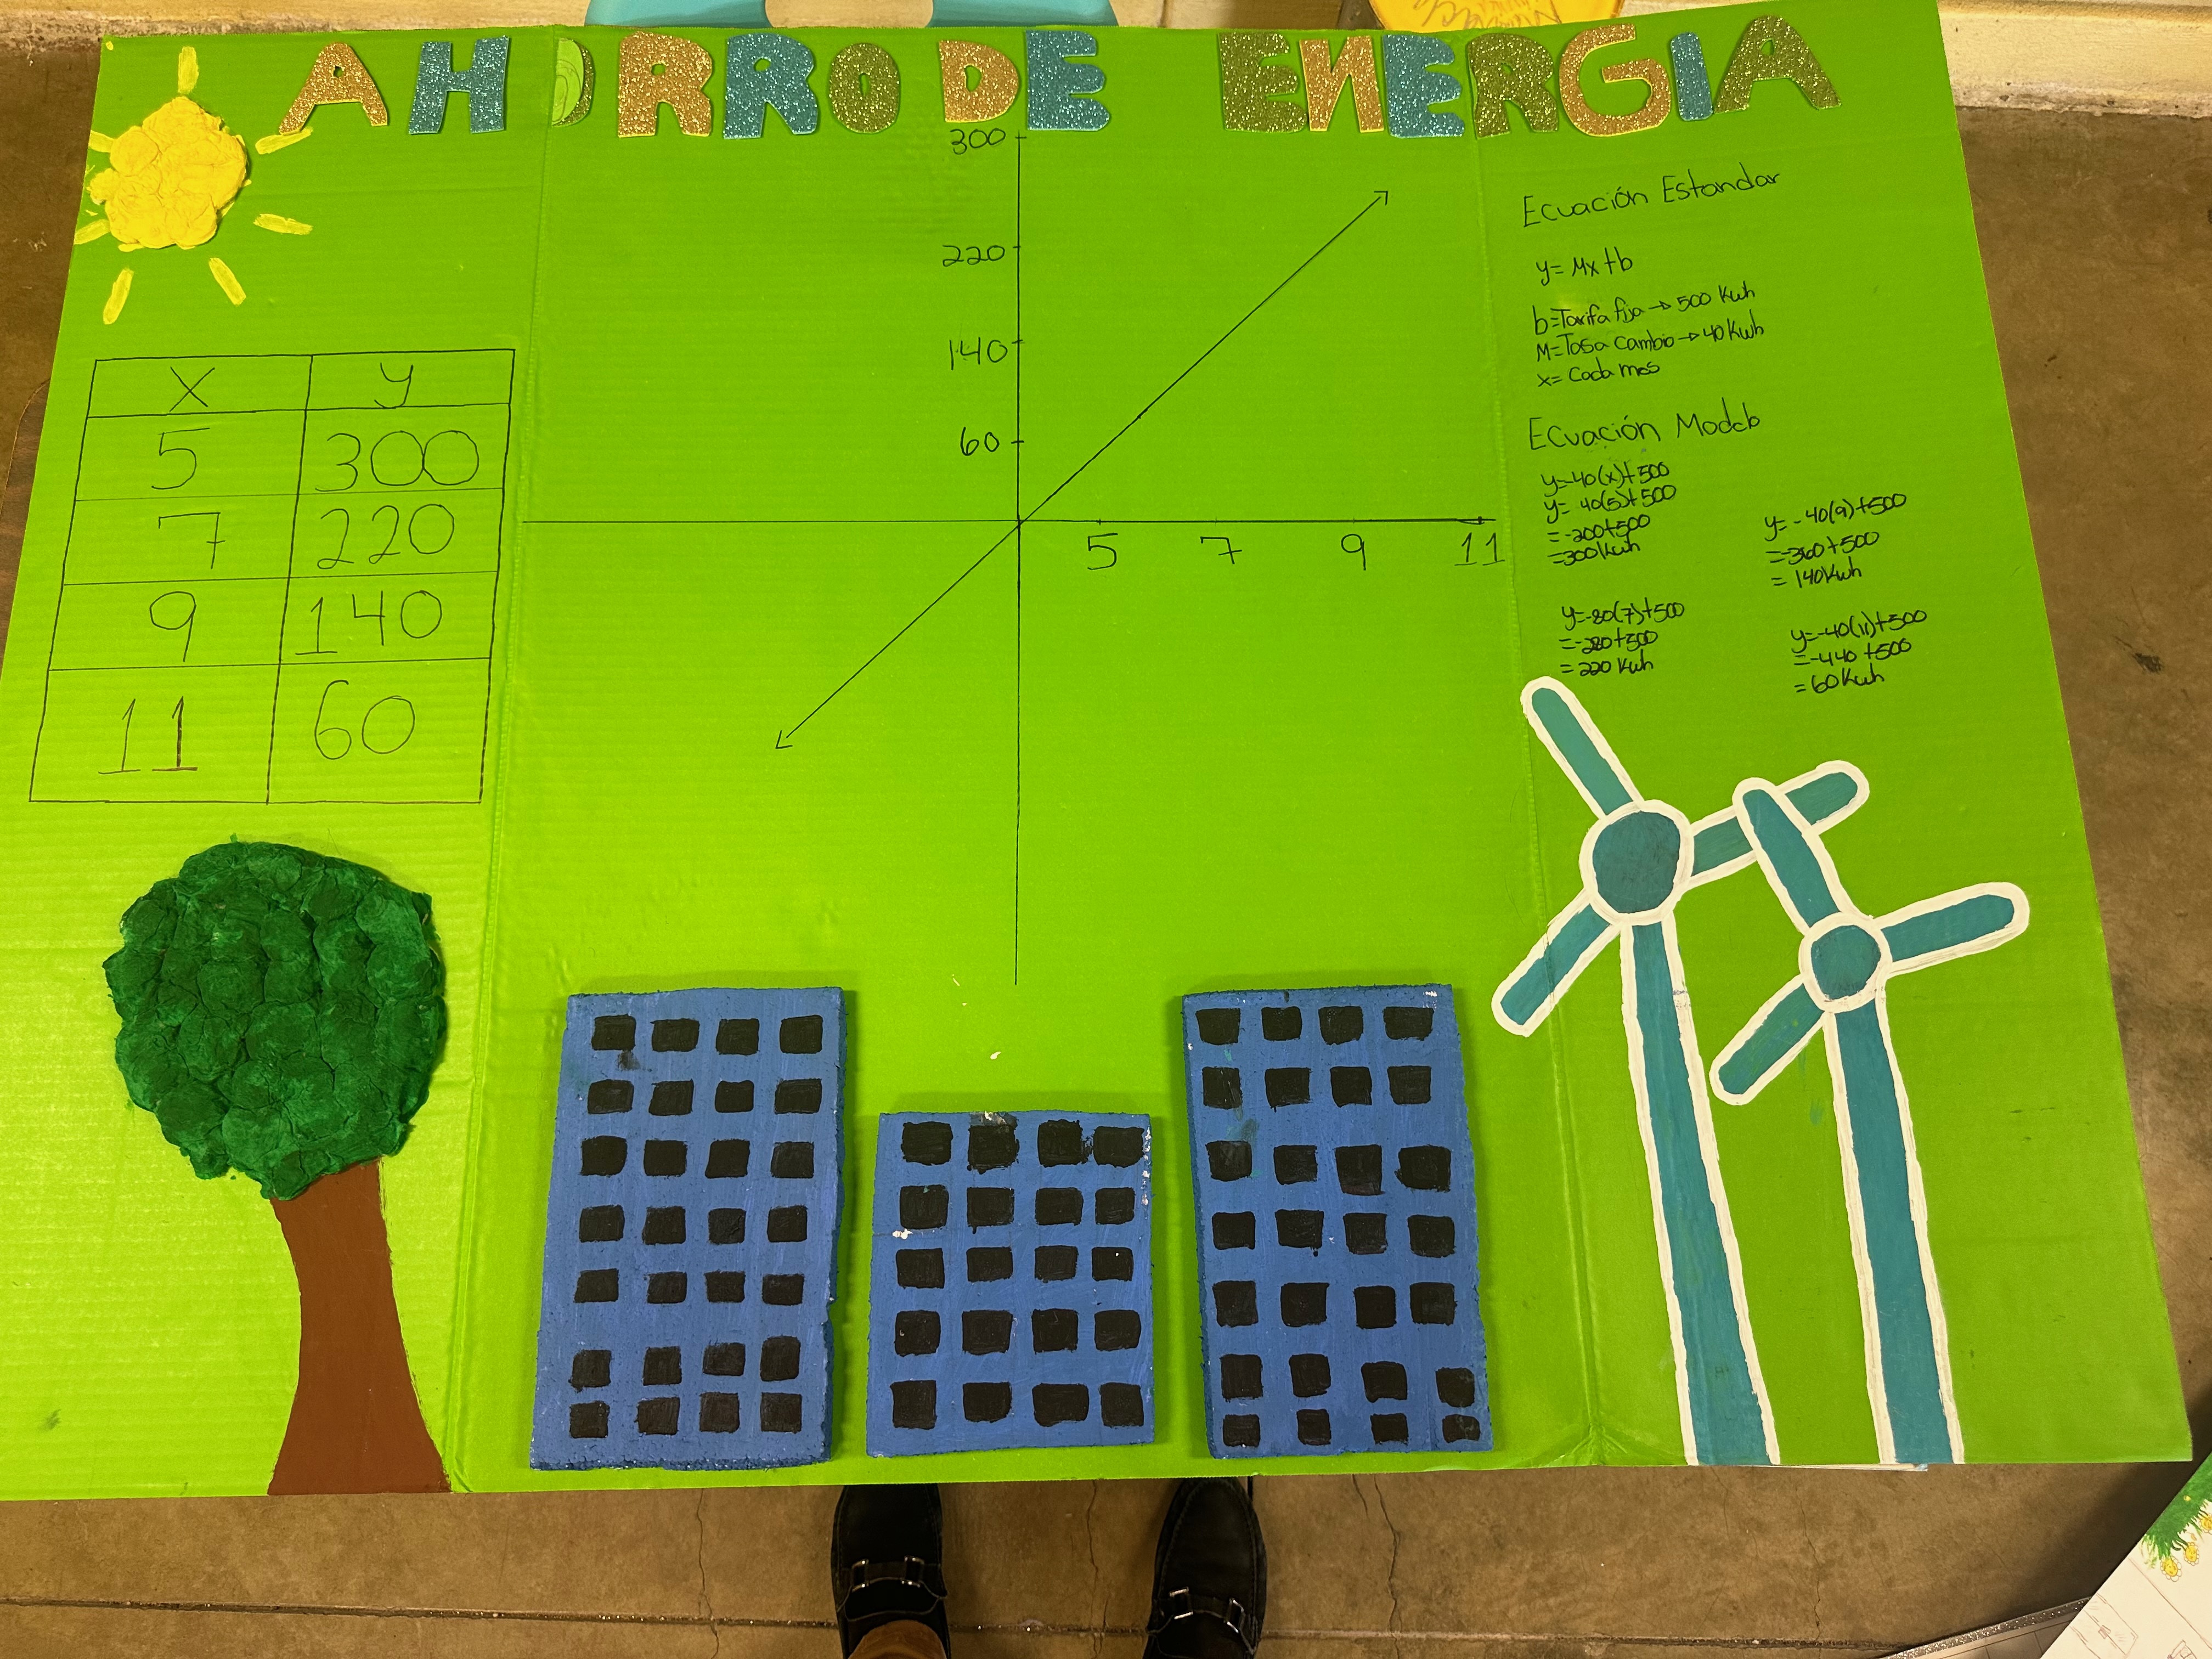 AHORRO DE ENERGIA
X Y
5 300
7 220
9 140
11 60
300
220
140
60
5 7 9 11
Ecuación Estandar
y= Mx+b
b=Tarifa fija → 500 Kwh
M=Tasa Cambio → 40 Kwh
x= Cada mes
Ecuación Modelo
y=-40(x)+500
y= 40(5)+500
=-200+500
=300Kwh
y=-80(7)+500
=-280+500
=220 Kwh
y=-40(9)+500
=-360+500
= 140Kwh
y=-40(11)+500
=-440+500
=60Kwh